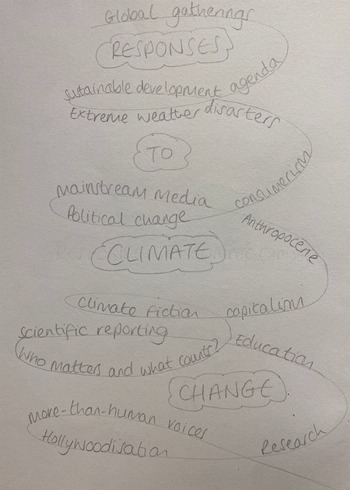 Global gatherings
RESPONSES
sustainable development agenda
Extreme weather disasters
TO
consumerism
mainstream media
Political change
Anthropocene
CLIMATE
climate fiction capitalism
scientific reporting
who matters and what counts?
Education
CHANGE
more-than-human voices
Hollywoodisation
Research